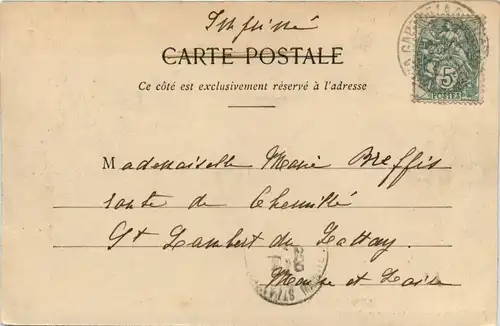 Imprimé
CARTE POSTALE
Ce côté est exclusivement réservé à l'adresse
Mademoiselle Marie
route de Chemillé
St Lambert du Lattay
Maine et Loire
5
POSTES